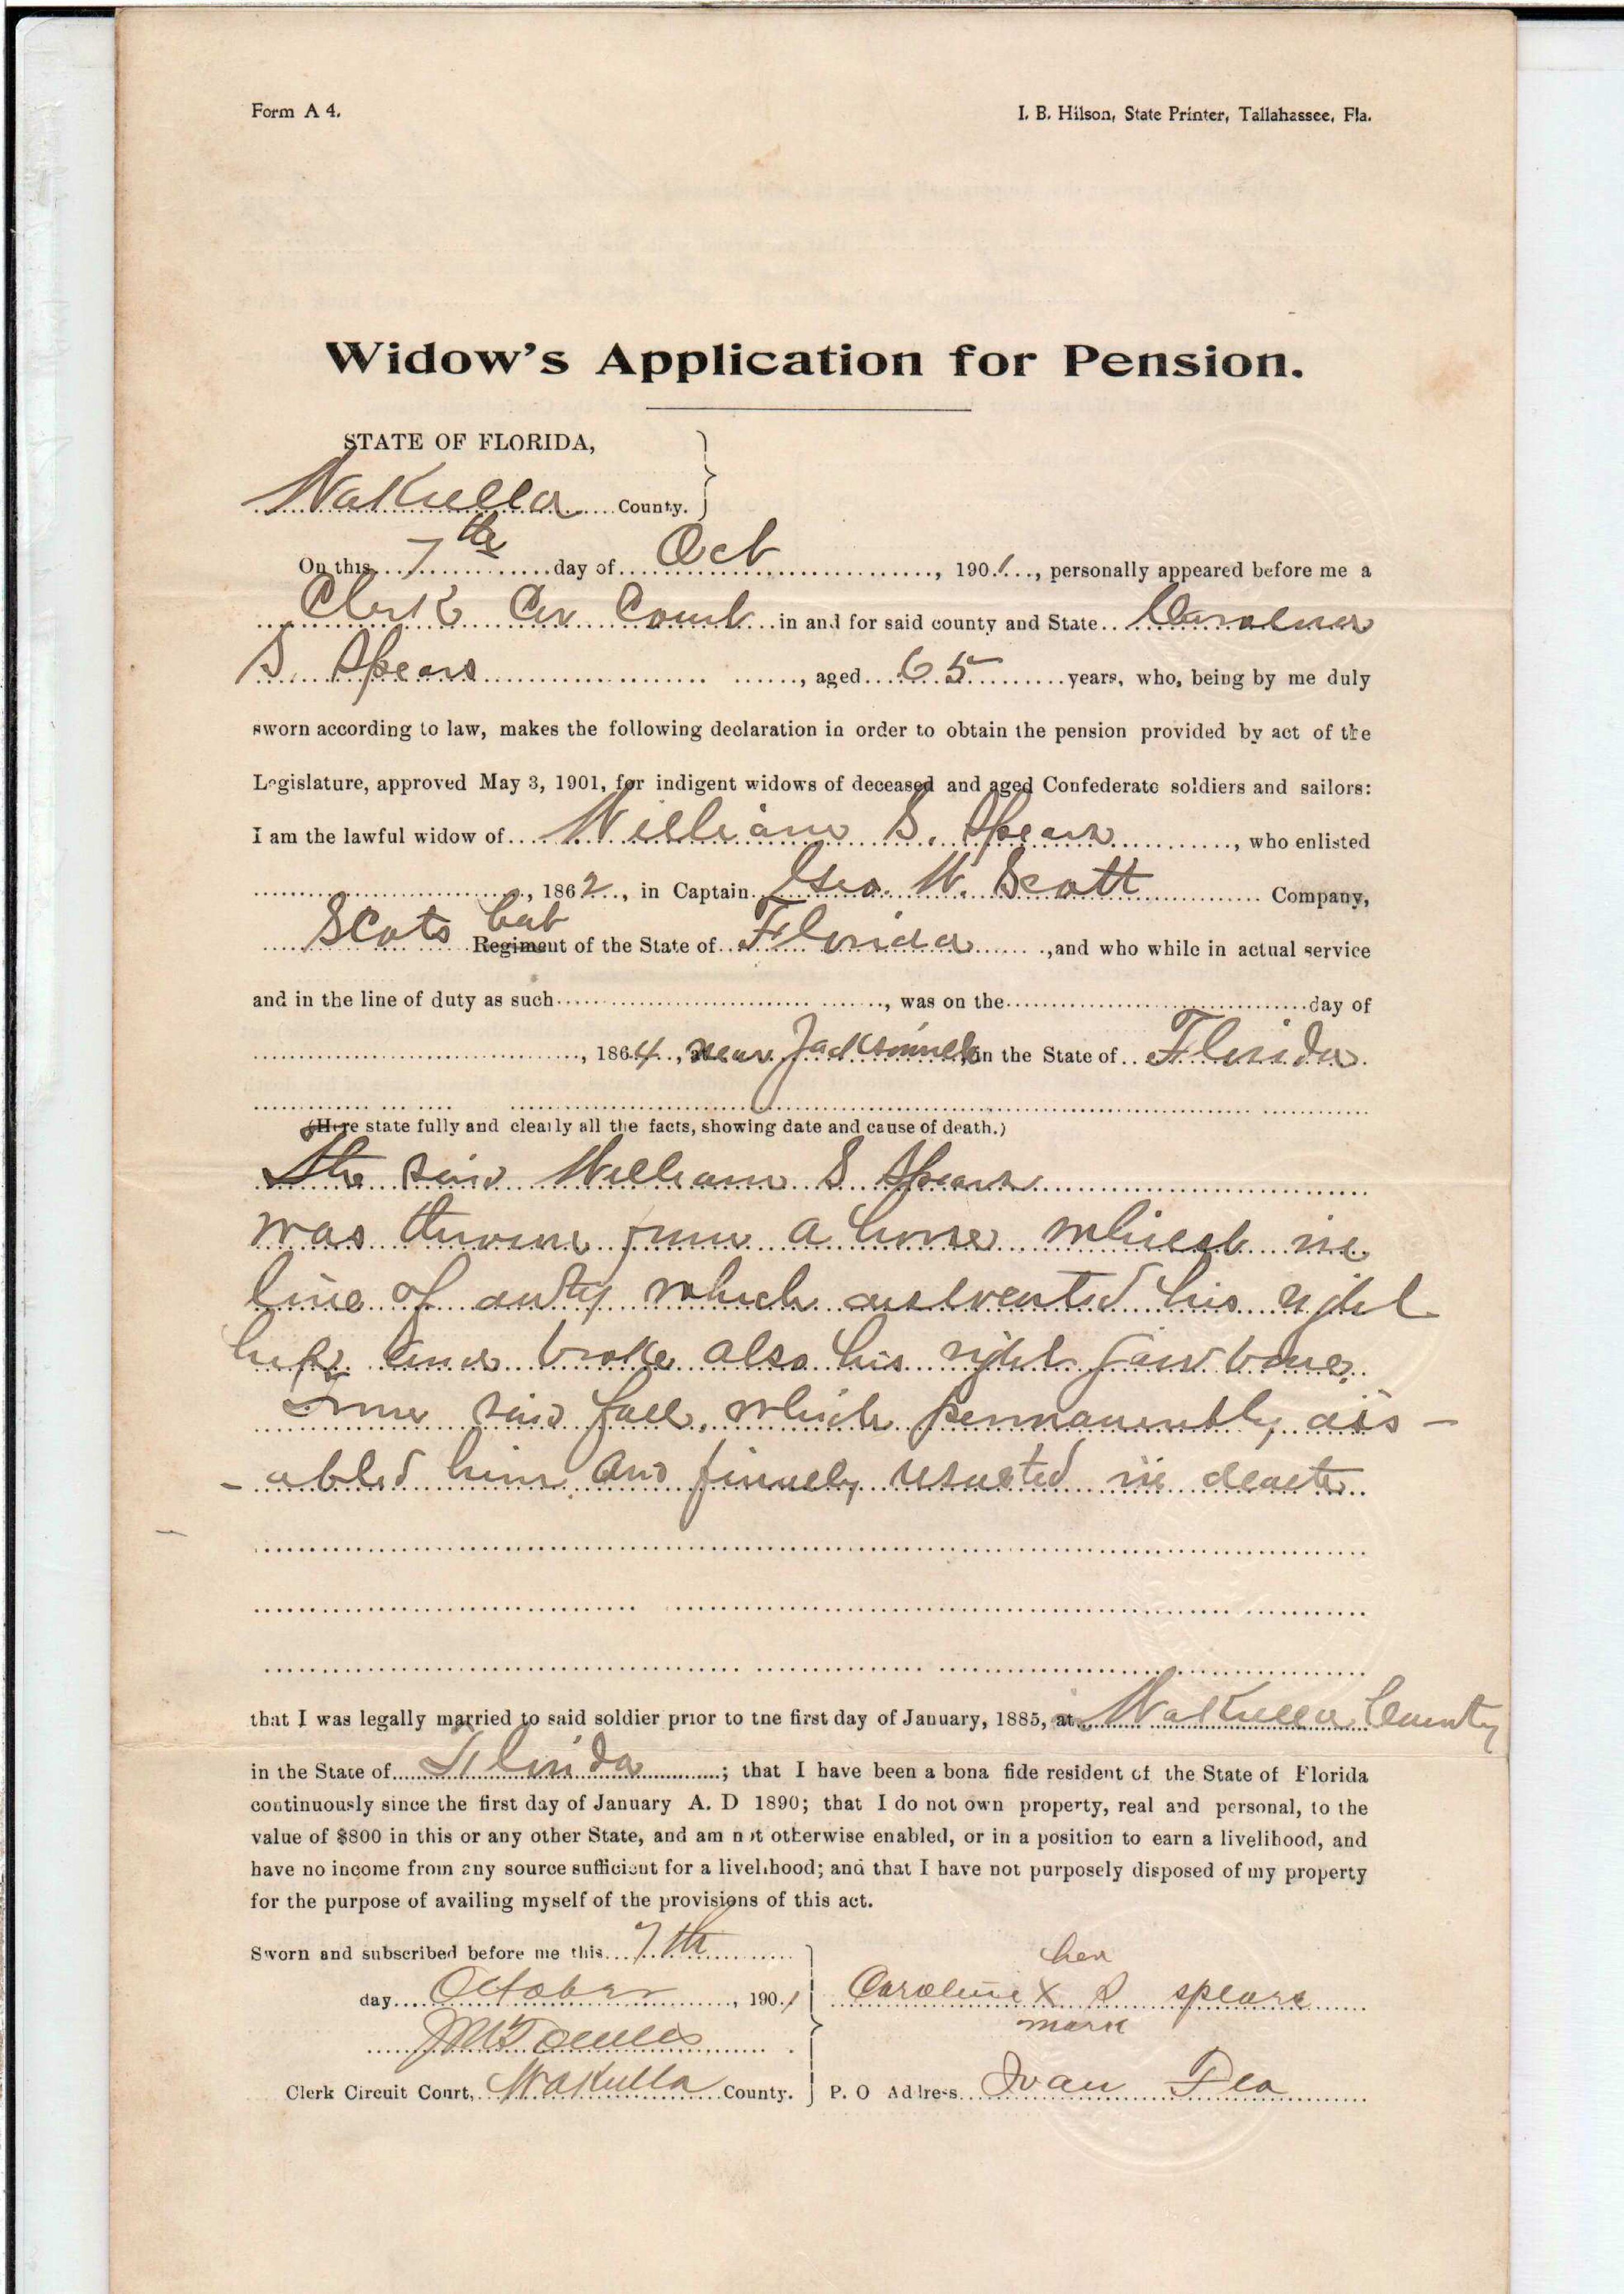 Form A 4.
I. B. Hilson, State Printer, Tallahassee, Fla.
Widow's Application for Pension.
STATE OF FLORIDA,
Wakulla County.
On this 7th day of Oct, 1901, personally appeared before me a
Clerk Cir Court in and for said county and State Caroline
S. Spears, aged 65 years, who, being by me duly
sworn according to law, makes the following declaration in order to obtain the pension provided by act of the
Legislature, approved May 3, 1901, for indigent widows of deceased and aged Confederate soldiers and sailors:
I am the lawful widow of William S. Spears, who enlisted
, 1862, in Captain Geo. W. Scott Company,
Scots bat Regiment of the State of Florida, and who while in actual service
and in the line of duty as such, was on the day of
, 1864, near Jacksonville in the State of Florida.
(Here state fully and clearly all the facts, showing date and cause of death.)
The said William S Spears
was thrown from a horse whilest in
line of duty which dislocated his right
hip and broke also his right jaw bone
from said fall, which permanently dis-
-abled him and finally resulted in death.
that I was legally married to said soldier prior to the first day of January, 1885, Wakulla County
in the State of Florida; that I have been a bona fide resident of the State of Florida
continuously since the first day of January A. D 1890; that I do not own property, real and personal, to the
value of $800 in this or any other State, and am not otherwise enabled, or in a position to earn a livelihood, and
have no income from any source sufficient for a livelihood; and that I have not purposely disposed of my property
for the purpose of availing myself of the provisions of this act.
Sworn and subscribed before me this 7th
day October, 1901
her
Caroline X S spears
mark
Clerk Circuit Court, Wakulla County.
P. O Address Ivan Fla